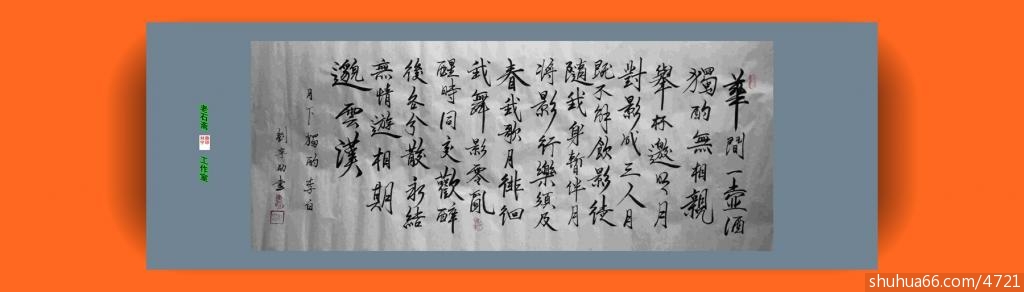 華間一壺酒
獨酌無相親
舉杯邀明月
對影成三人月
既不解飲影徒
隨我身暫伴月
将影行樂須及
春我歌月徘徊
我舞影零亂
醒時同交歡醉
後各分散永結
無情遊相期
邈雲漢
月下獨酌 李白
老石斋
工作室
shuhua66.com/4721